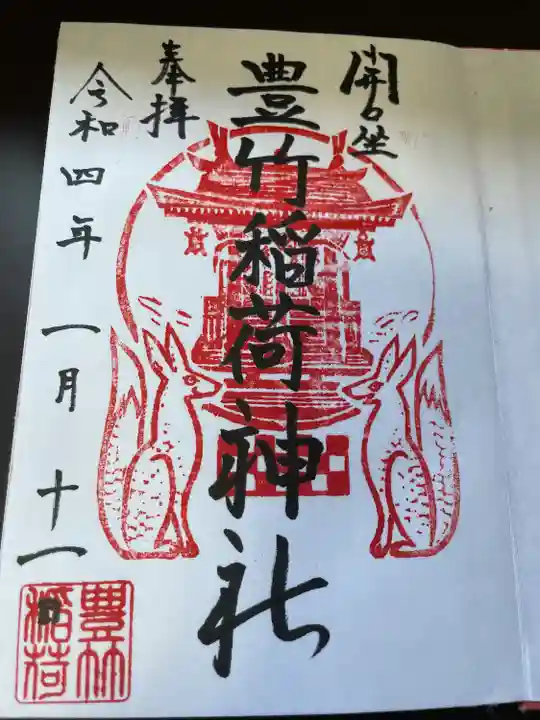 開口坐
豊竹稲荷神社
奉拝
令和四年 一月 十一日
豊竹
稲荷